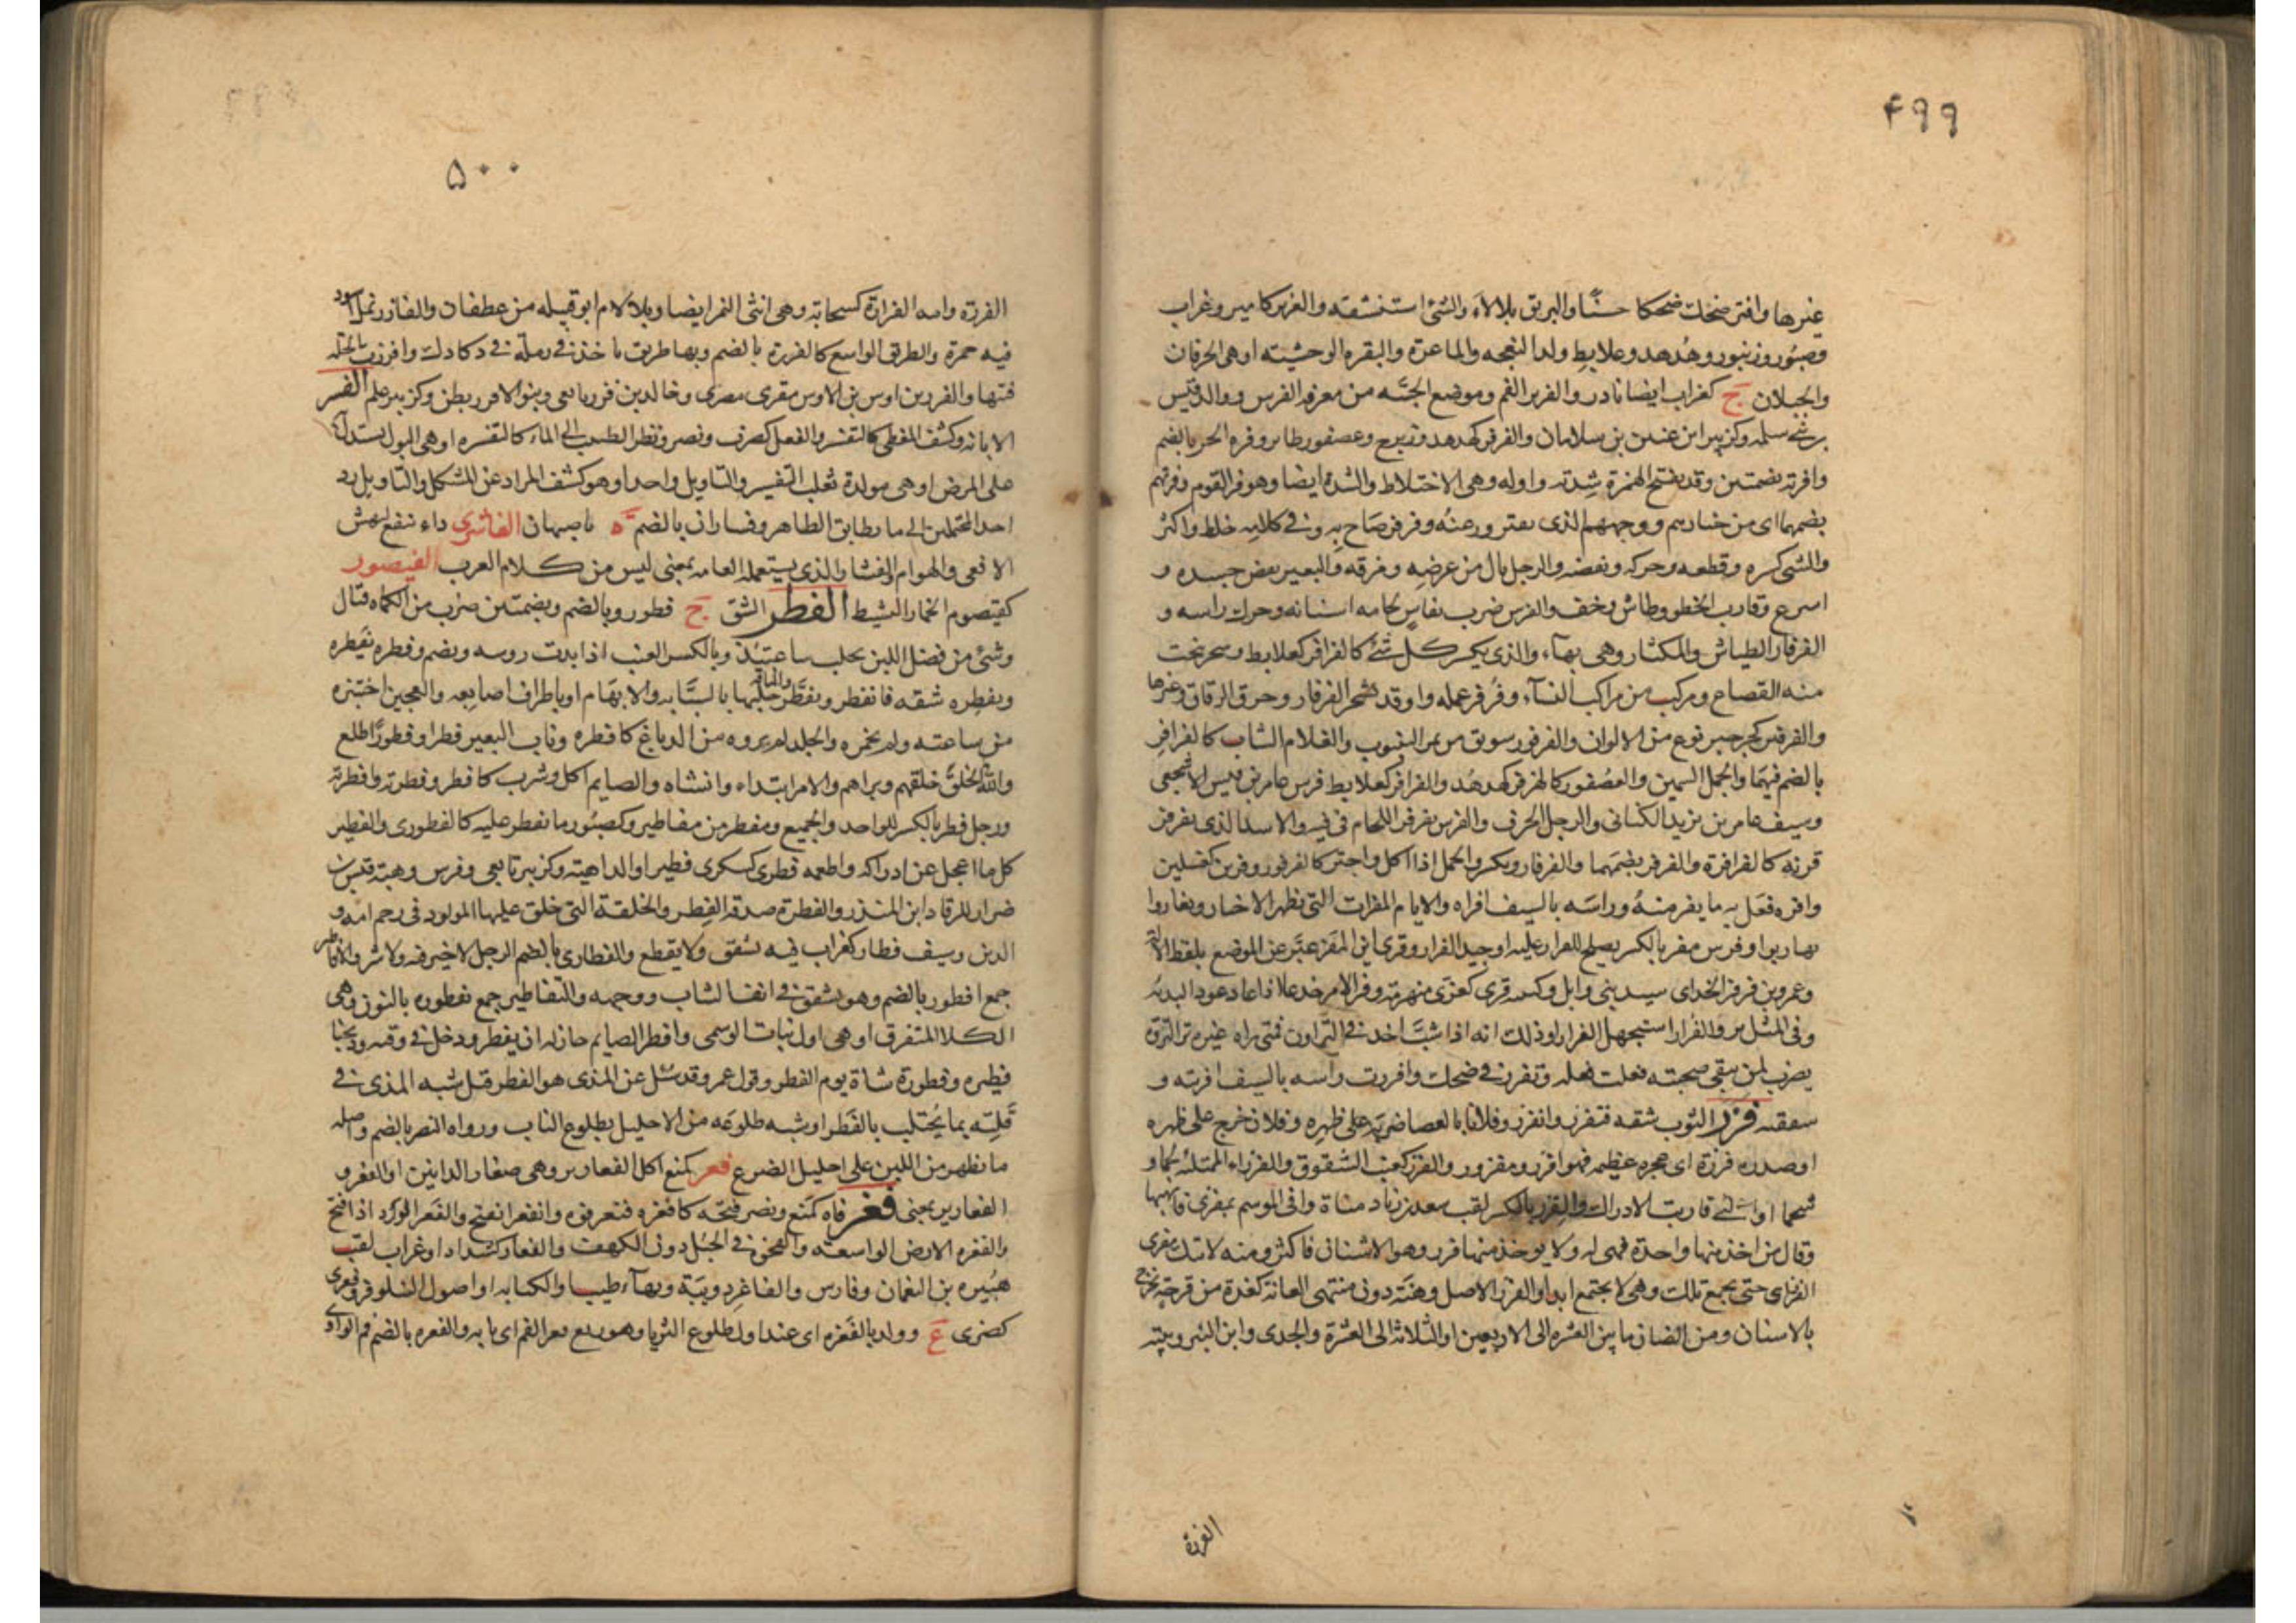 ۴۹۹
غيرها وافتر ضحك ضحكا حسنًا والبرق تلالاء والشئ استنشقه والفرير كامير وغراب
وصبور وزنبور وهُدهد وعلابط ولد النعجه والماعزة والبقره الوحشيته او هى الخرفان
والجملان ج كغراب ايضا نادر والفرير الفم وموضع المجسَّه من معرفه الفرس ووالد قيس
سلمه وكزبير ابن عنين بن سلامان والفرفر كهدهد وزبرج وعصفور طاير وفره الحر بالضم
وافرته بضمتين وقد يفتح الهمزة شدته واوله وهى الاختلاط والشدة ايضا وهو فر القوم وفرتهم
بضمهما اى من خيارهم ووجههم الذى يفتر ورعنه وفرفر صاح به وفى كلامه خلط واكثر
والشئ كسره وقطعه وحركه ونفضه والرجل نال من عرضه ومزقه والبعير نفض جسده و
اسرع وقارب الخطو وطاش وخف والفرس ضرب بفاس لجامه اسنانه وحرك راسه و
الفرفار الطياش والمكثار وهى بهاء والذى يكسر كل شئ كالفرافر كعلابط وشجر تنحت
منه القصاع ومركب من مراكب النسآء وفرفر عمله واوقد شجر الفرفار وخرق الزقاق وغيرها
والفرفير كجرجير نوع من الالوان والفرفور سويق من ثمر الينبوت والغلام الشاب كالفرافر
بالضم فيهما والجمل السمين والعصفور كالفرفر كهدهد والفرافر كعلابط فرس عامر بن قيس الاشجعى
وسيف عامر بن يزيد الكنانى والرجل الاخرق والفرس يفرفر اللجام فى فيه والاسد الذى يفرفر
قرنه كالفرافرة والفرفر بضمهما والفرفار ويكسر والجمل اذا اكل واجتر كالفرفور وفرين كغسلين
وافره فعل به ما يفر منه وراسه بالسيف افراه والايام المفرات التى تظهر الاخبار وتفاروا
تهاربوا وفرس مفر بالكسر يصلح للفرار عليه او جيد الفرار وقرئ اين المفر عبر عن الموضع بلفظ الآلة
وعمرو بن فرفر الجذامى سيد بنى وابل وكتيبه فرى كعزى منهزمة وفر الامر جذعا اذا عاد عوده لبدئه
وفى المثل نزو الفرار استجهل الفرارا وذلك انه اذا شب اخذ فى النزاون فمتى راه غيره نزا لنزوه
يضرب لمن يتقى صحبته فعلت فعله وتفرز فى ضحك وافررت راسه بالسيف افريته و
شققته فزر الثوب شقه فتفزر وانفزر وفلانا بالعصا ضربه على ظهره وفلان خرج على ظهره
او صدره فزرة اى عجره عظيمه فهو افزر ومفزور والفزر كعنب الشقوق والفزراء الممتلئه لحما و
شحما او التى قاربت الادراك والفزر بالكسر لقب سعد بن زيد مناة وافى الموسم بمعزى فانهبها
وقال من اخذ منها واحدة فهى له ولا يوخذ منها فزر وهو الاثنان فاكثر ومنه لا اتيك معزى
الفزر اى حتى يجتمع تلك وهى لا تجتمع ابدا والفزر الاصل وهنة دون منتهى العانة كغدة من قرحة تخرج
بالانسان ومن الضان ما بين العشره الى الاربعين او الثلاثة الى العشرة والجدى وابن الببر وبنته
الفزرة
۵۰۰
الفزرة وامه الفزارة كسحابة وهى انثى النمر ايضا وبلا لام ابو قبيله من غطفان والفازر نمل اسود
فيه حمرة والطريق الواسع كالفزرة بالضم وبها طريق ياخذ فى رملة فى دكادك وافزرت الجلة
فتتها والفزر بن اوس بن الاوس مقرى مصرى وخالد بن فزر تابعى وبنو الافزر بطن وكزبير علم الفسر
الابانه وكشف المغطى كالتفسير والفعل كضرب ونصر ونظر الطبيب الى الماء كالتفسره او هى البول يستدل به
على المرض او هى مولدة ثعلب التفسير والتاويل واحد او هو كشف المراد عن المشكل والتاويل رد
احد المحتملين الى ما يطابق الظاهر وفساران بالضم ة باصبهان الفاشرى داء ينفع لنهش
الافعى والهوام والفشار الذى يستعمله العامه بمعنى ليس من كلام العرب الفيصور
كقيصوم الحمار النشيط الفطر الشق ج فطور وبالضم وبضمتين ضرب من الكماه قتال
وشئ من فضل اللبن يحلب ساعتيذ وبالكسر العنب اذا بدت روسه ويضم وفطره يفطره
ويفطره شقه فانفطر وتفطر والناقه حلبها بالسبابه والابهام او باطراف اصابعه والعجين اختبزه
من ساعته ولم يخمره والجلد لم يروه من الدباغ كافطره وناب البعير فطرا وفطورا طلع
والله الخلق خلقهم وبراهم والامر ابتداه وانشاه والصايم اكل وشرب كافطر وفطرته وافطرته
ورجل فطر بالكسر للواحد والجميع ومفطر من مفاطير وكصبور ما يفطر عليه كالفطورى والفطير
كل ما اعجل عن ادراكه واطعمه فطرى كسكرى فطيرا والداهية وكزبير تابعى وفرس وهبه قيس بن
ضرار للرقاد ابن المنذر والفطرة صدقة الفطر والخلقة التى خلق عليها المولود فى رحم امه و
الدين وسيف فطار كغراب فيه تشقق ولا يقطع والفطارى بالضم الرجل لا خير فيه ولا شر والافاطير
جمع افطور بالضم وهو تشقق فى انف الشاب ووجهه والتفاطير جمع تفطوره بالنون وهى
الكلا المتفرق او هى اول نبات الوسمى وافطر الصايم حان له ان يفطر ودخل فى وقته وذبحنا
فطيره وفطورة شاة يوم الفطر وقول عمر وقد سئل عن المذى هو الفطر قيل شبه المذى فى
قلته بما يحتلب بالفطر او شبه طلوعه من الاحليل بطلوع الناب ورواه النضر بالضم واصله
ما يظهر من اللبن على احليل الضرع فعر كمنع اكل الفعارير وهى صغار الذانين او الفعر و
الفعارير بمعنى فغر فاه كمنع ونصر فتحه كافغره ففغر فوه وانفغر انفتح والفغر الورد اذا فتح
والفغره الارض الواسعة والفجوة فى الجبل دون الكهف والفغار كشداد او غراب لقب
هبيره بن النعمان وفارس والفاغر دويبة وبهاء طيب او الكبابه او اصول النيلوفر وفغرى
كضزى ع وولد بالفغره اى عند اول طلوع الثريا وهو واسع فغر الفم اى بابه والفغره بالضم فم الوادى